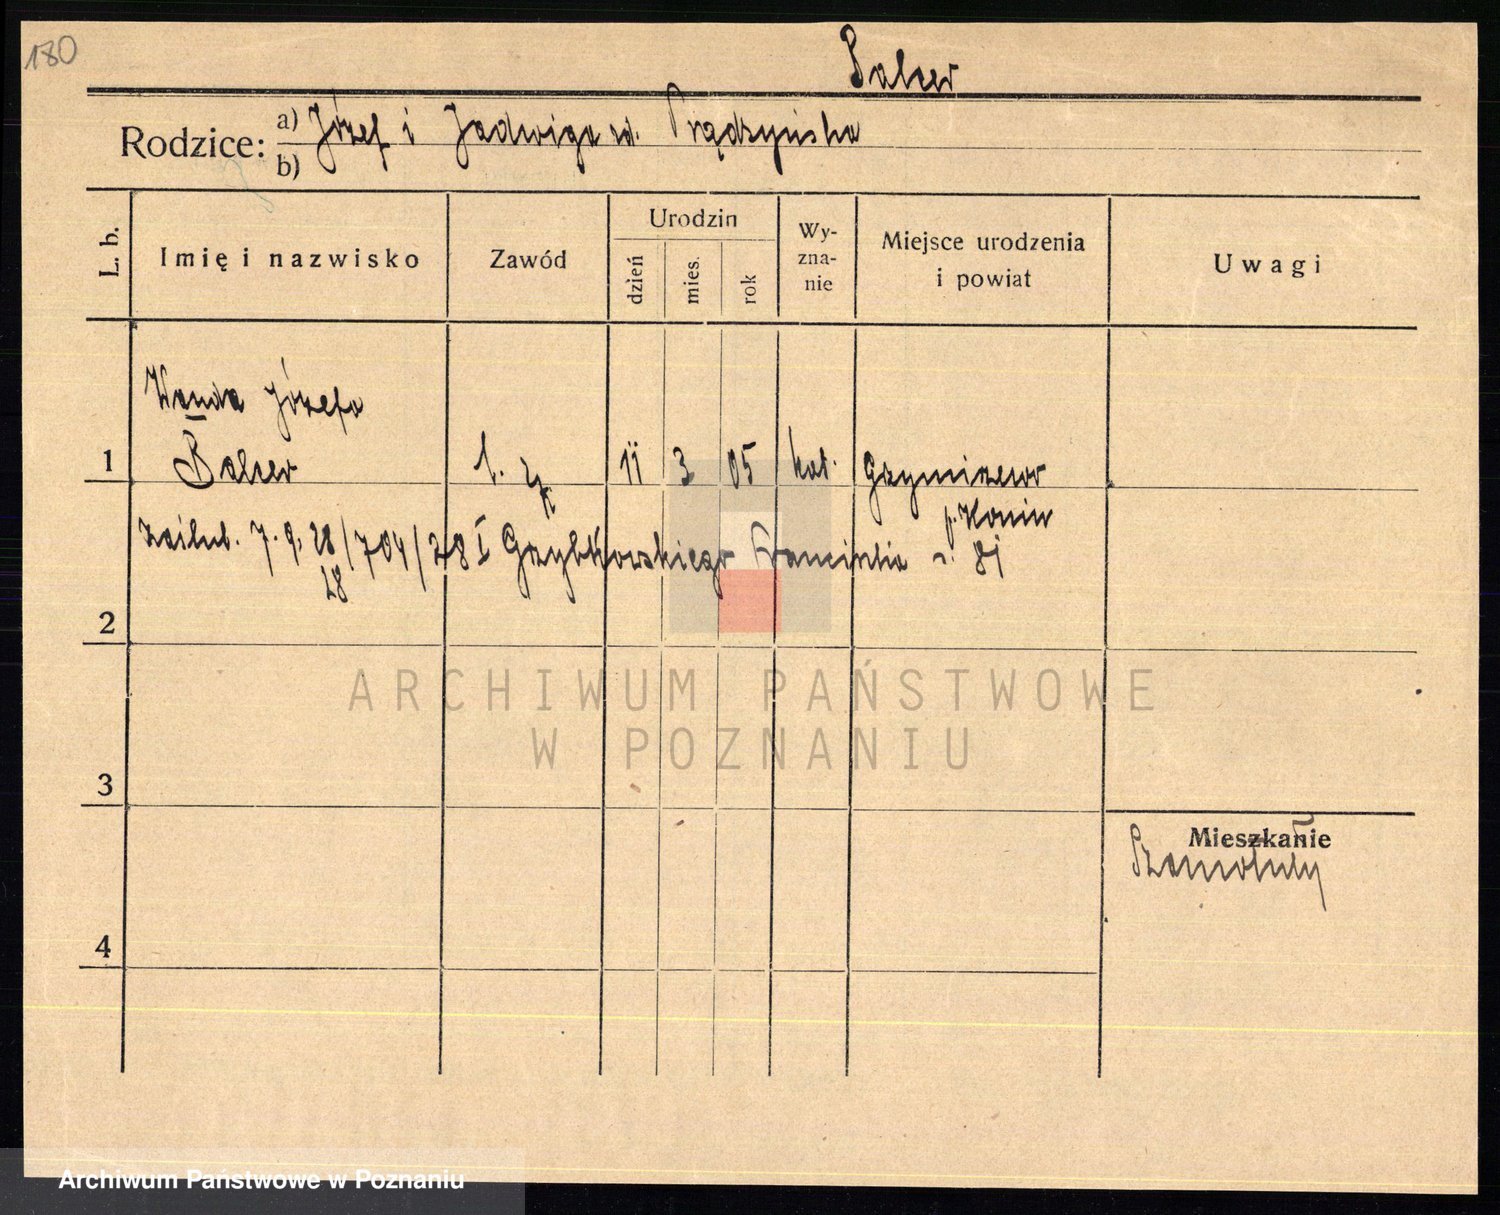 180
Balcer
Rodzice: a) Józef i Jadwiga zd. Prądzyńska
b)
L. b. Imię i nazwisko Zawód Urodzin dzień mies. rok Wy-zna-nie Miejsce urodzenia i powiat Uwagi
Wanda Józefa
1 Balcer b. z. 11 3 05 kat. Grzymiszew
p. Konin
zaślub. 7. 9. 28/704/28 I Grzybkowskiego Franciszka
28
2
ARCHIWUM PAŃSTWOWE
W POZNANIU
3
Mieszkanie
Szamotuły
4
Archiwum Państwowe w Poznaniu